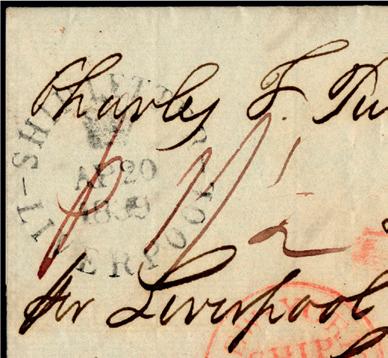 Charles F. Tu
LIVERPOOL SHIP LETTER
AP 20
1839
1/2
Per Liverpool
SHIP